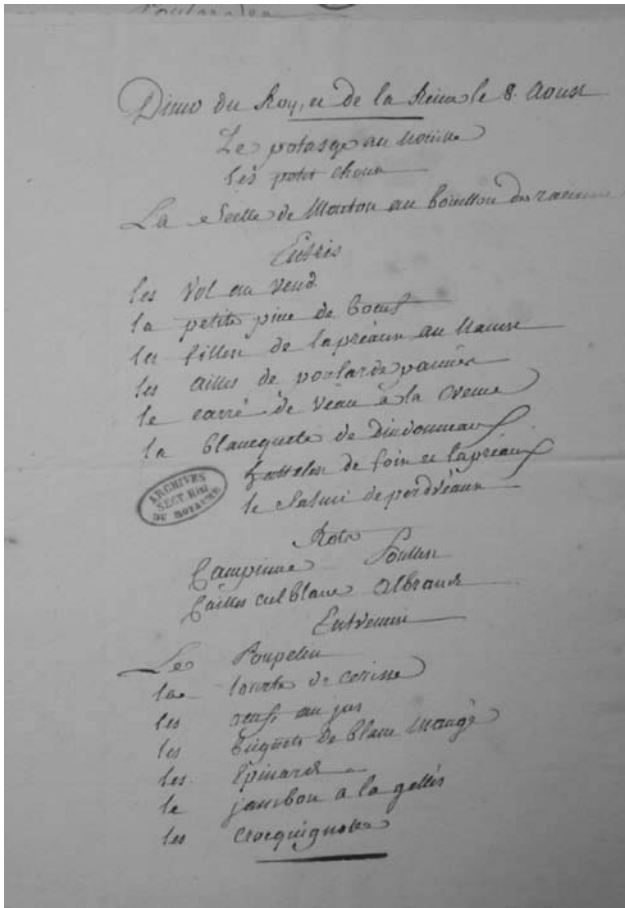 Diné du Roy, et de la Reine le 8. Aoust
Le potasge au
les petit choux
La de Mouton au bouillon des racinne
Entrés
les Vol au Vend
la petite piece de boeuf
les fillets de lapréaux au
les ailles de poularde pannée
le carré de Veau à la Creme
la Blancquete de Dindonneaux
hattelen de foix et lapréaux
le Salmi de perdréaux
ARCHIVES
SECT. HIST
DU ROYAUME
Rots
Campinne Poullets
Cailles cul blanc Albrand
Entremis
Le Poupelin
la tourte de cerisse
les oeufs au jus
les Bignets de blanc Mangé
les Epinards
le jambon a la gellée
les Crocquignoles